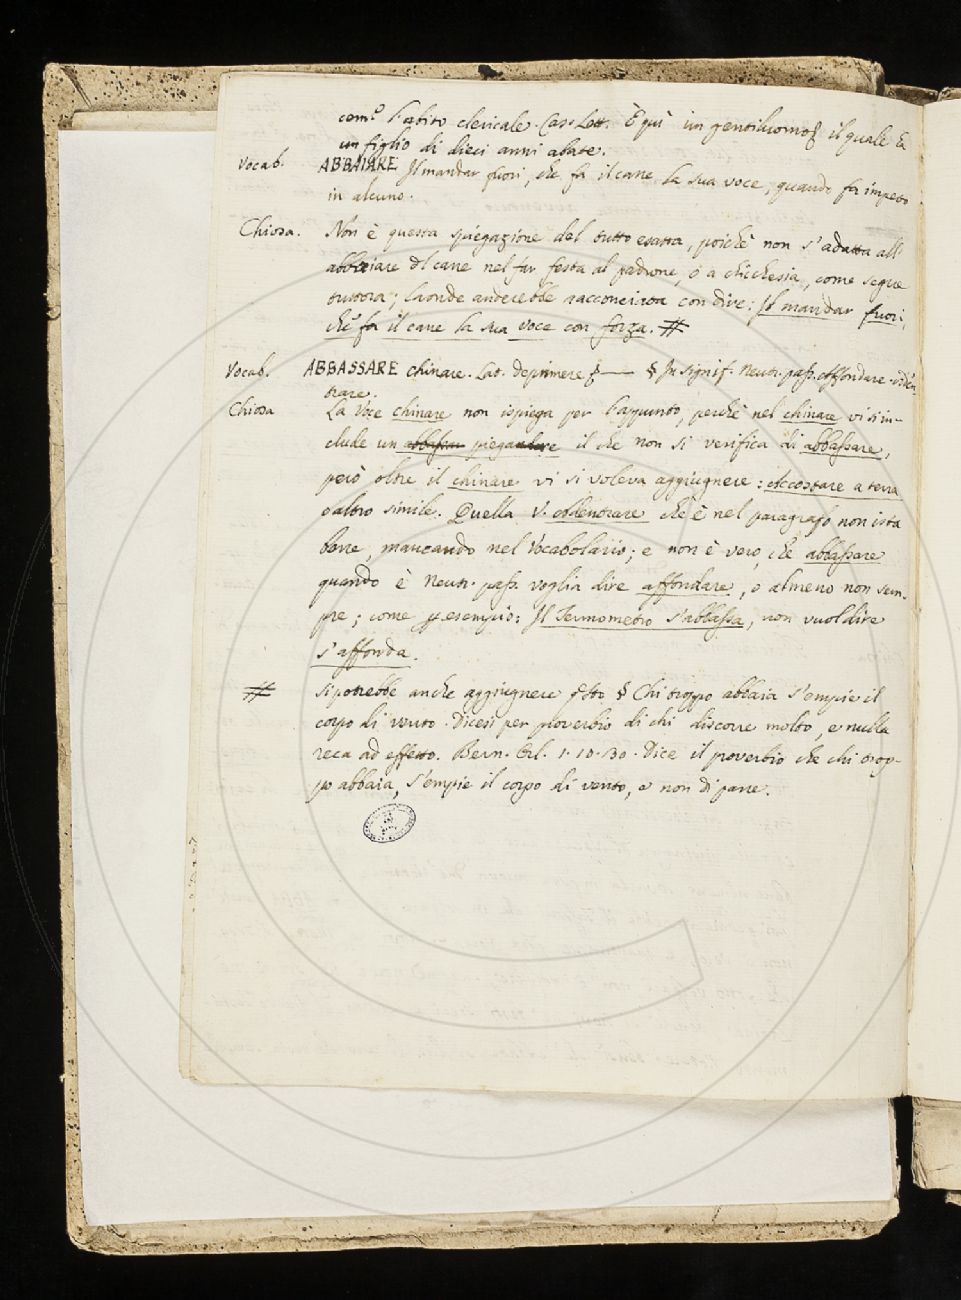 com.e l'abito clericale. Cas. Lett. È quì un gentiluomo il quale ha
un figlio di dieci anni abate.
Vocab. ABBAIARE Il mandar fuori, che fa il cane la sua voce, quando fa impeto
in alcuno.
Chiosa. Non è questa spiegazione del tutto esatta, poichè non s'adatta all'
abbaiare del cane nel far festa al padrone, o a chichesia, come segue
tuttora; laonde anderebbe racconciata con dire: Il mandar fuori,
che fa il cane la sua voce con forza. #
Vocab. ABBASSARE chinare. Lat. deprimere — § In signif. Neutr. pass. Affondare. Adden
trare.
Chiosa La Voce chinare non ispiega per l'appunto, perchè nel chinare vi si in-
clude un abbassar piegare il che non si verifica di abbassare,
però oltre il chinare vi si voleva aggiugnere: Accostare a terra
o altro simile. Quella V. addentrare che è nel paragrafo non ista
bene, mancando nel Vocabolario; e non è vero, che abbassare
quando è Neutr. pass. voglia dire affondare, o almeno non sem-
pre; come p esempio: Il Termometro s'abbassa, non vuol dire
s'affonda.
# Si potrebbe anche aggiugnere qsto § Chi troppo abbaia s'empie il
corpo di vento. Dicesi per proverbio di chi discorre molto, e nulla
reca ad effetto. Bern. Orl. 1. 10. 30. Dice il proverbio che chi trop-
po abbaia, s'empie il corpo di vento, e non di pane.